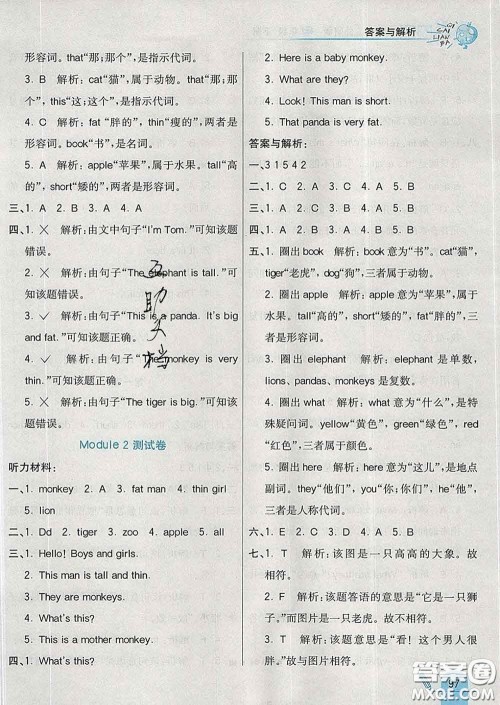 答案与解析
形容词。that“那;那个”,是指示代词。
3. B 解析:cat“猫”,属于动物。that“那;那个”,this“这;这个”,是指示代词。
4. C 解析:fat“胖的”, thin“瘦的”,两者是形容词。book“书”,是名词。
5. A 解析:apple“苹果”,属于水果。tall“高的”, short“矮的”,两者是形容词。
三、1. A 2. B 3. A 4. A
四、1. ✕ 解析:由文中句子“I'm Tom.”可知该题错误。
2. ✕ 解析:由句子“The elephant is tall.”可知该题错误。
3. ✓ 解析:由句子“This is a panda. It's big and fat.”可知该题正确。
4. ✓ 解析:由句子“The monkey is very thin.”可知该题正确。
5. ✕ 解析:由句子“The tiger is big.”可知该题错误。
Module 2 测试卷
听力材料:
一、1. monkey 2. A 3. fat man 4. thin girl
5. lion
二、1. Dd 2. tiger 3. zoo 4. apple 5. all
三、1. Hello! Boys and girls.
2. This man is tall and thin.
3. They are monkeys.
4. What's this?
5. This is a mother monkey.
四、1. What's this?
2. Here is a baby monkey.
3. What are they?
4. Look! This man is short.
5. That panda is very fat.
答案与解析:
一、3 1 5 4 2
二、1. A 2. C 3. C 4. A 5. B
三、1. A 2. B 3. C 4. A 5. B
四、1. A 2. B 3. B 4. A 5. B
五、1. 圈出 book 解析:book 意为“书”。cat“猫”, tiger“老虎”, dog“狗”,三者属于动物。
2. 圈出 cat 解析:cat 意为“猫”,属于动物。tall“高的”, short“矮的”, fat“胖的”,三者是形容词。
3. 圈出 elephant 解析:elephant 是单数, lions, pandas, monkeys 是复数。
4. 圈出 what 解析:what 意为“什么”,是特殊疑问词。yellow“黄色”, green“绿色”, red“红色”,三者属于颜色。
5. 圈出 here 解析:here 意为“这儿”,是地点副词。I“我”, he“他”, she“她”,三者是人称代词。
六、1. C 2. E 3. A 4. D 5. B
七、1. T 解析:该图是一只高高的大象。故相符。
2. F 解析:该题答语的意思是“它是一只狮子。”而图片是一只老虎。故不相符。
3. F 解析:该题意思是“看!这个男人很胖。”故与图片不相符。
互
助
文
档
答案圈
97